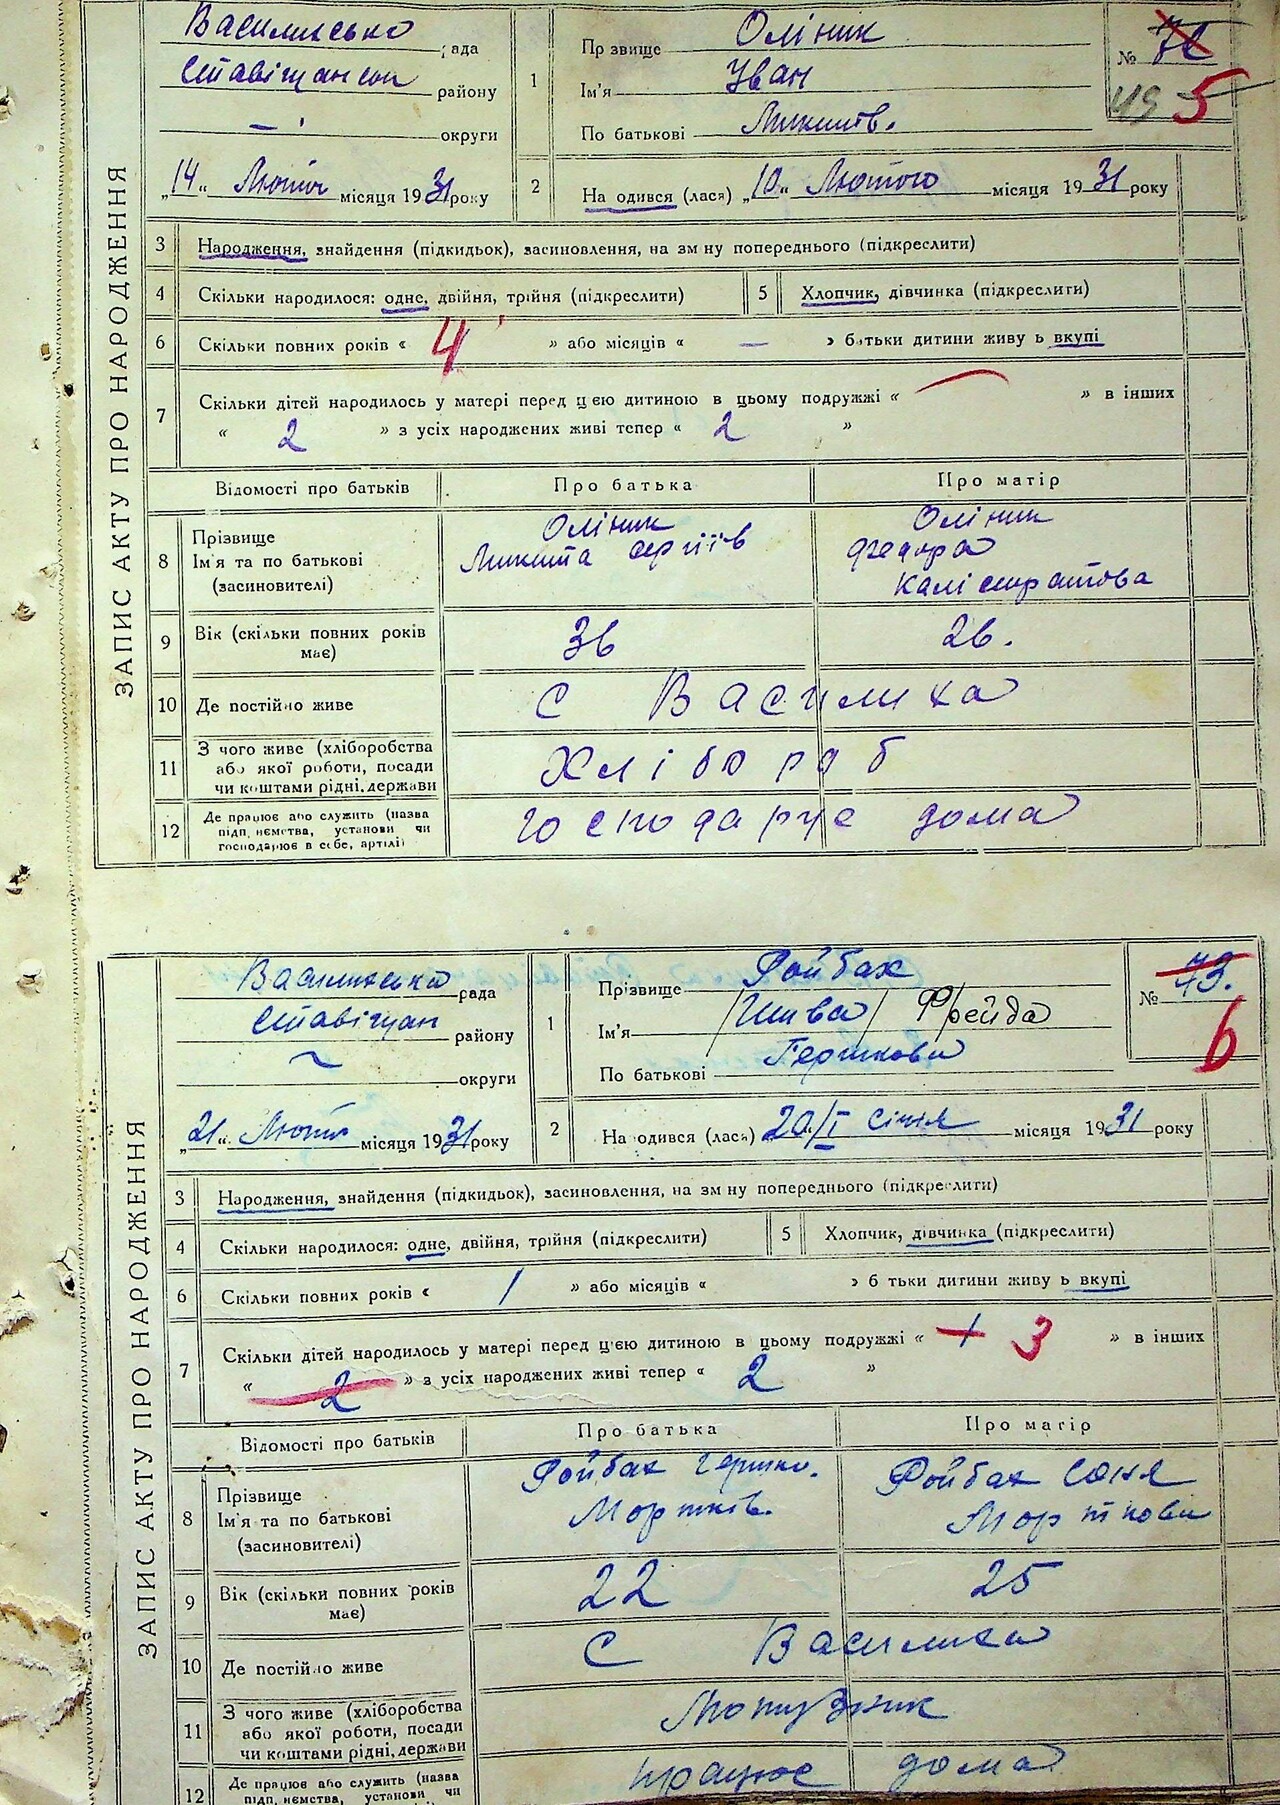 ЗАПИС АКТУ ПРО НАРОДЖЕННЯ
Василиською рада
Ставіщанськ району
— округи
"14" Лютого місяця 1931 року
1
Прзвище Оліник
Ім'я Іван
По батькові Микитів.
№ 5
2
На одився (лася) "10" Лютого місяця 1931 року
3 Народження, знайдення (підкидьок), засиновлення, на зм ну попереднього (підкреслити)
4 Скільки народилося: одне, двійня, трійня (підкреслити)
5 Хлопчик, дівчинка (підкреслити)
6 Скільки повних років « 4 » або місяців « — » батьки дитини живуь вкупі
7 Скільки дітей народилось у матері перед цією дитиною в цьому подружжі « — » в інших
« 2 » з усіх народжених живі тепер « 2 »
Відомості про батьків Про батька Про матір
8 Прізвище
Ім'я та по батькові
(засиновителі)
Оліник
Микита Сергіїв
Оліник
Федора
Калістратова
9 Вік (скільки повних років
має)
36 26.
10 Де постійно живе с Василиха
11 З чого живе (хліборобства
або якої роботи, посади
чи коштами рідні, держави
Хлібораб
12 Де працює або служить (назва
підп, иємства, установи чи
господарює в себе, артілі)
господарує дома
ЗАПИС АКТУ ПРО НАРОДЖЕННЯ
Василиська рада
Ставіщан району
~ округи
"21" Лютого місяця 1931 року
1
Прізвище Ройбах
Ім'я /Шива/ Фрейда
По батькові Гершкова
№ 73. 6
2
На одився (лася) 20/I Січня місяця 1931 року
3 Народження, знайдення (підкидьок), засиновлення, на зм ну попереднього (підкреслити)
4 Скільки народилося: одне, двійня, трійня (підкреслити)
5 Хлопчик, дівчинка (підкреслити)
6 Скільки повних років « 1 » або місяців « » б тьки дитини живуь вкупі
7 Скільки дітей народилось у матері перед цією дитиною в цьому подружжі « 3 » в інших
« 2 » з усіх народжених живі тепер « 2 »
Відомості про батьків Про батька Про матір
8 Прізвище
Ім'я та по батькові
(засиновителі)
Ройбах Гершко.
Мортків.
Ройбах Соня
Морткова
9 Вік (скільки повних років
має)
22 25
10 Де постійно живе С Василиха
11 З чого живе (хліборобства
або якої роботи, посади
чи коштами рідні, держави
Мотузник
12 Де працює або служить (назва
підп, иємства, установи чи
працює дома